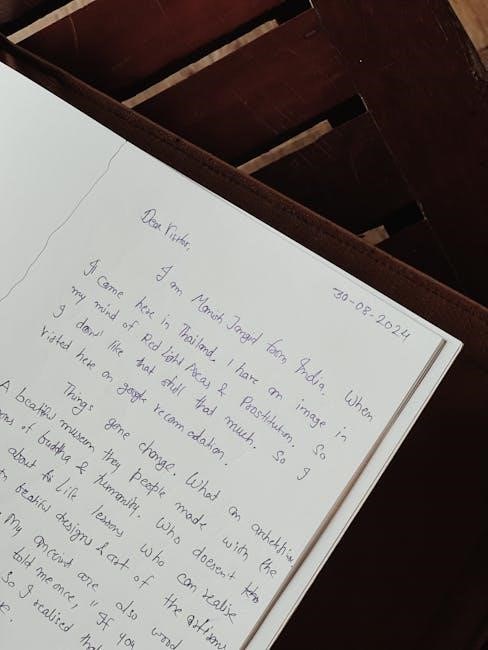 30-08-2024
Dear Visitor,
I am Manish Jangid from India. When
I come here in Thailand. I have an image in
my mind of Red Light Areas & Prostitution. So
I don't like that stuff that much. So I
visited here on google recomodation.
Things gone change. What an
A beatiful museum they people made with the
of buddha & humanity. Who doesn't
about his Life lessons who can realise
beatiful designs & art of the
My are also wood
told me once, "If you
So I realised that